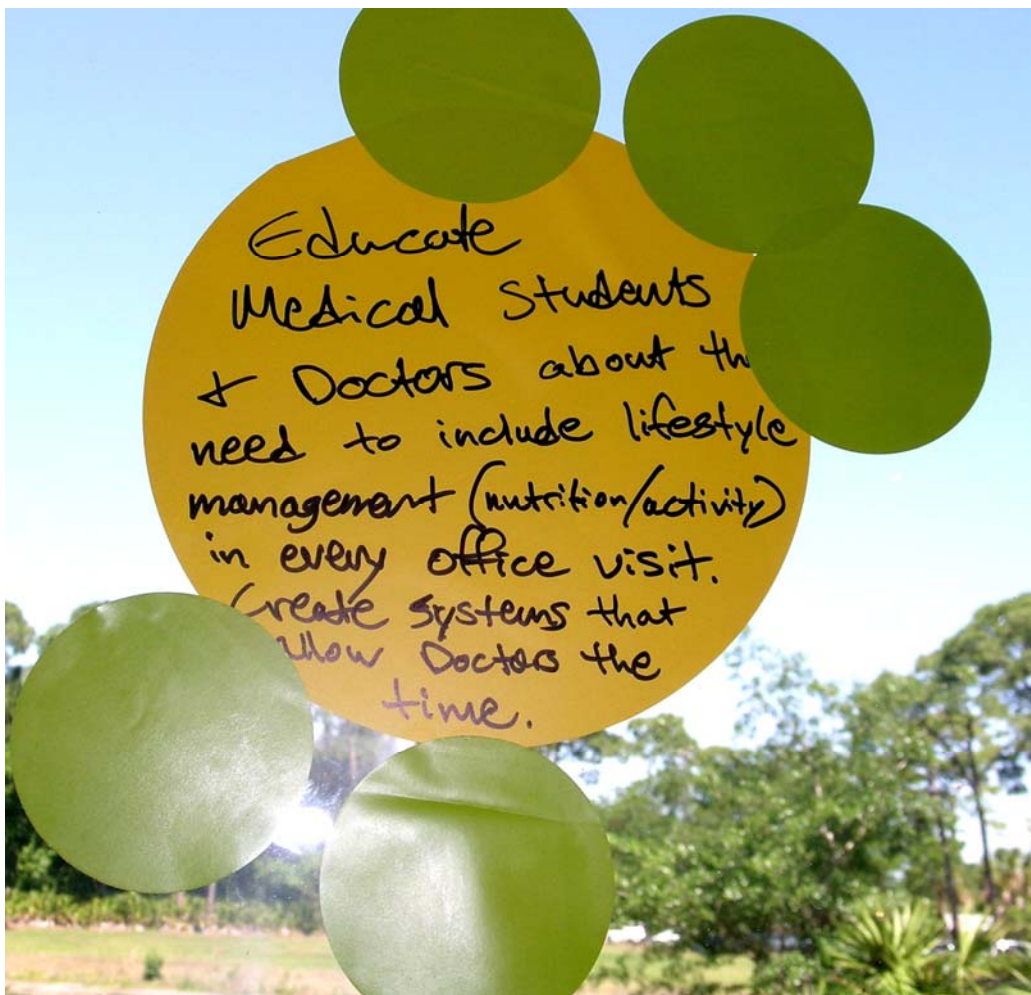 Educate
Medical Students
+ Doctors about the
need to include lifestyle
management (nutrition/activity)
in every office visit.
Create systems that
allow Doctors the
time.